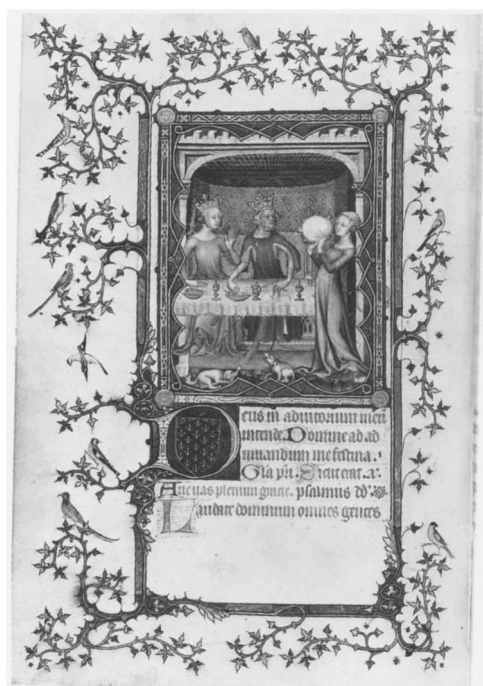 Deus in adiutorium meu
intende. Domine ad ad
iuuandum me festina.
Gla pri. Sicut erat. a.
Aue uas plenum gracie. psalmus dd
Laudate dominum omnes gentes